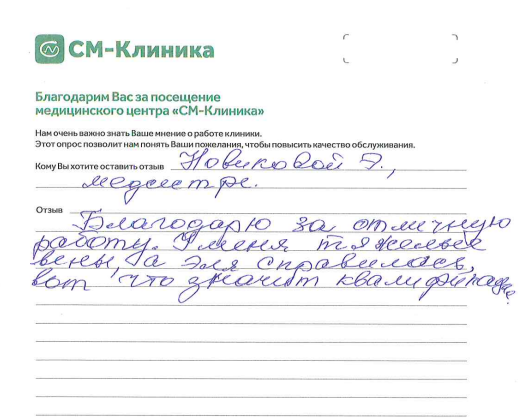 СМ-Клиника
Благодарим Вас за посещение
медицинского центра «СМ-Клиника»
Нам очень важно знать Ваше мнение о работе клиники.
Этот опрос позволит нам понять Ваши пожелания, чтобы повысить качество обслуживания.
Кому Вы хотите оставить отзыв Новиковой Э.,
медсестре.
Отзыв Благодарю за отличную
работу. У меня тяжелые
вены, а Эля справилась,
вот что значит квалификация.